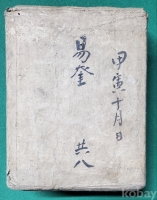 甲寅十月日
易奎
共八
kobay